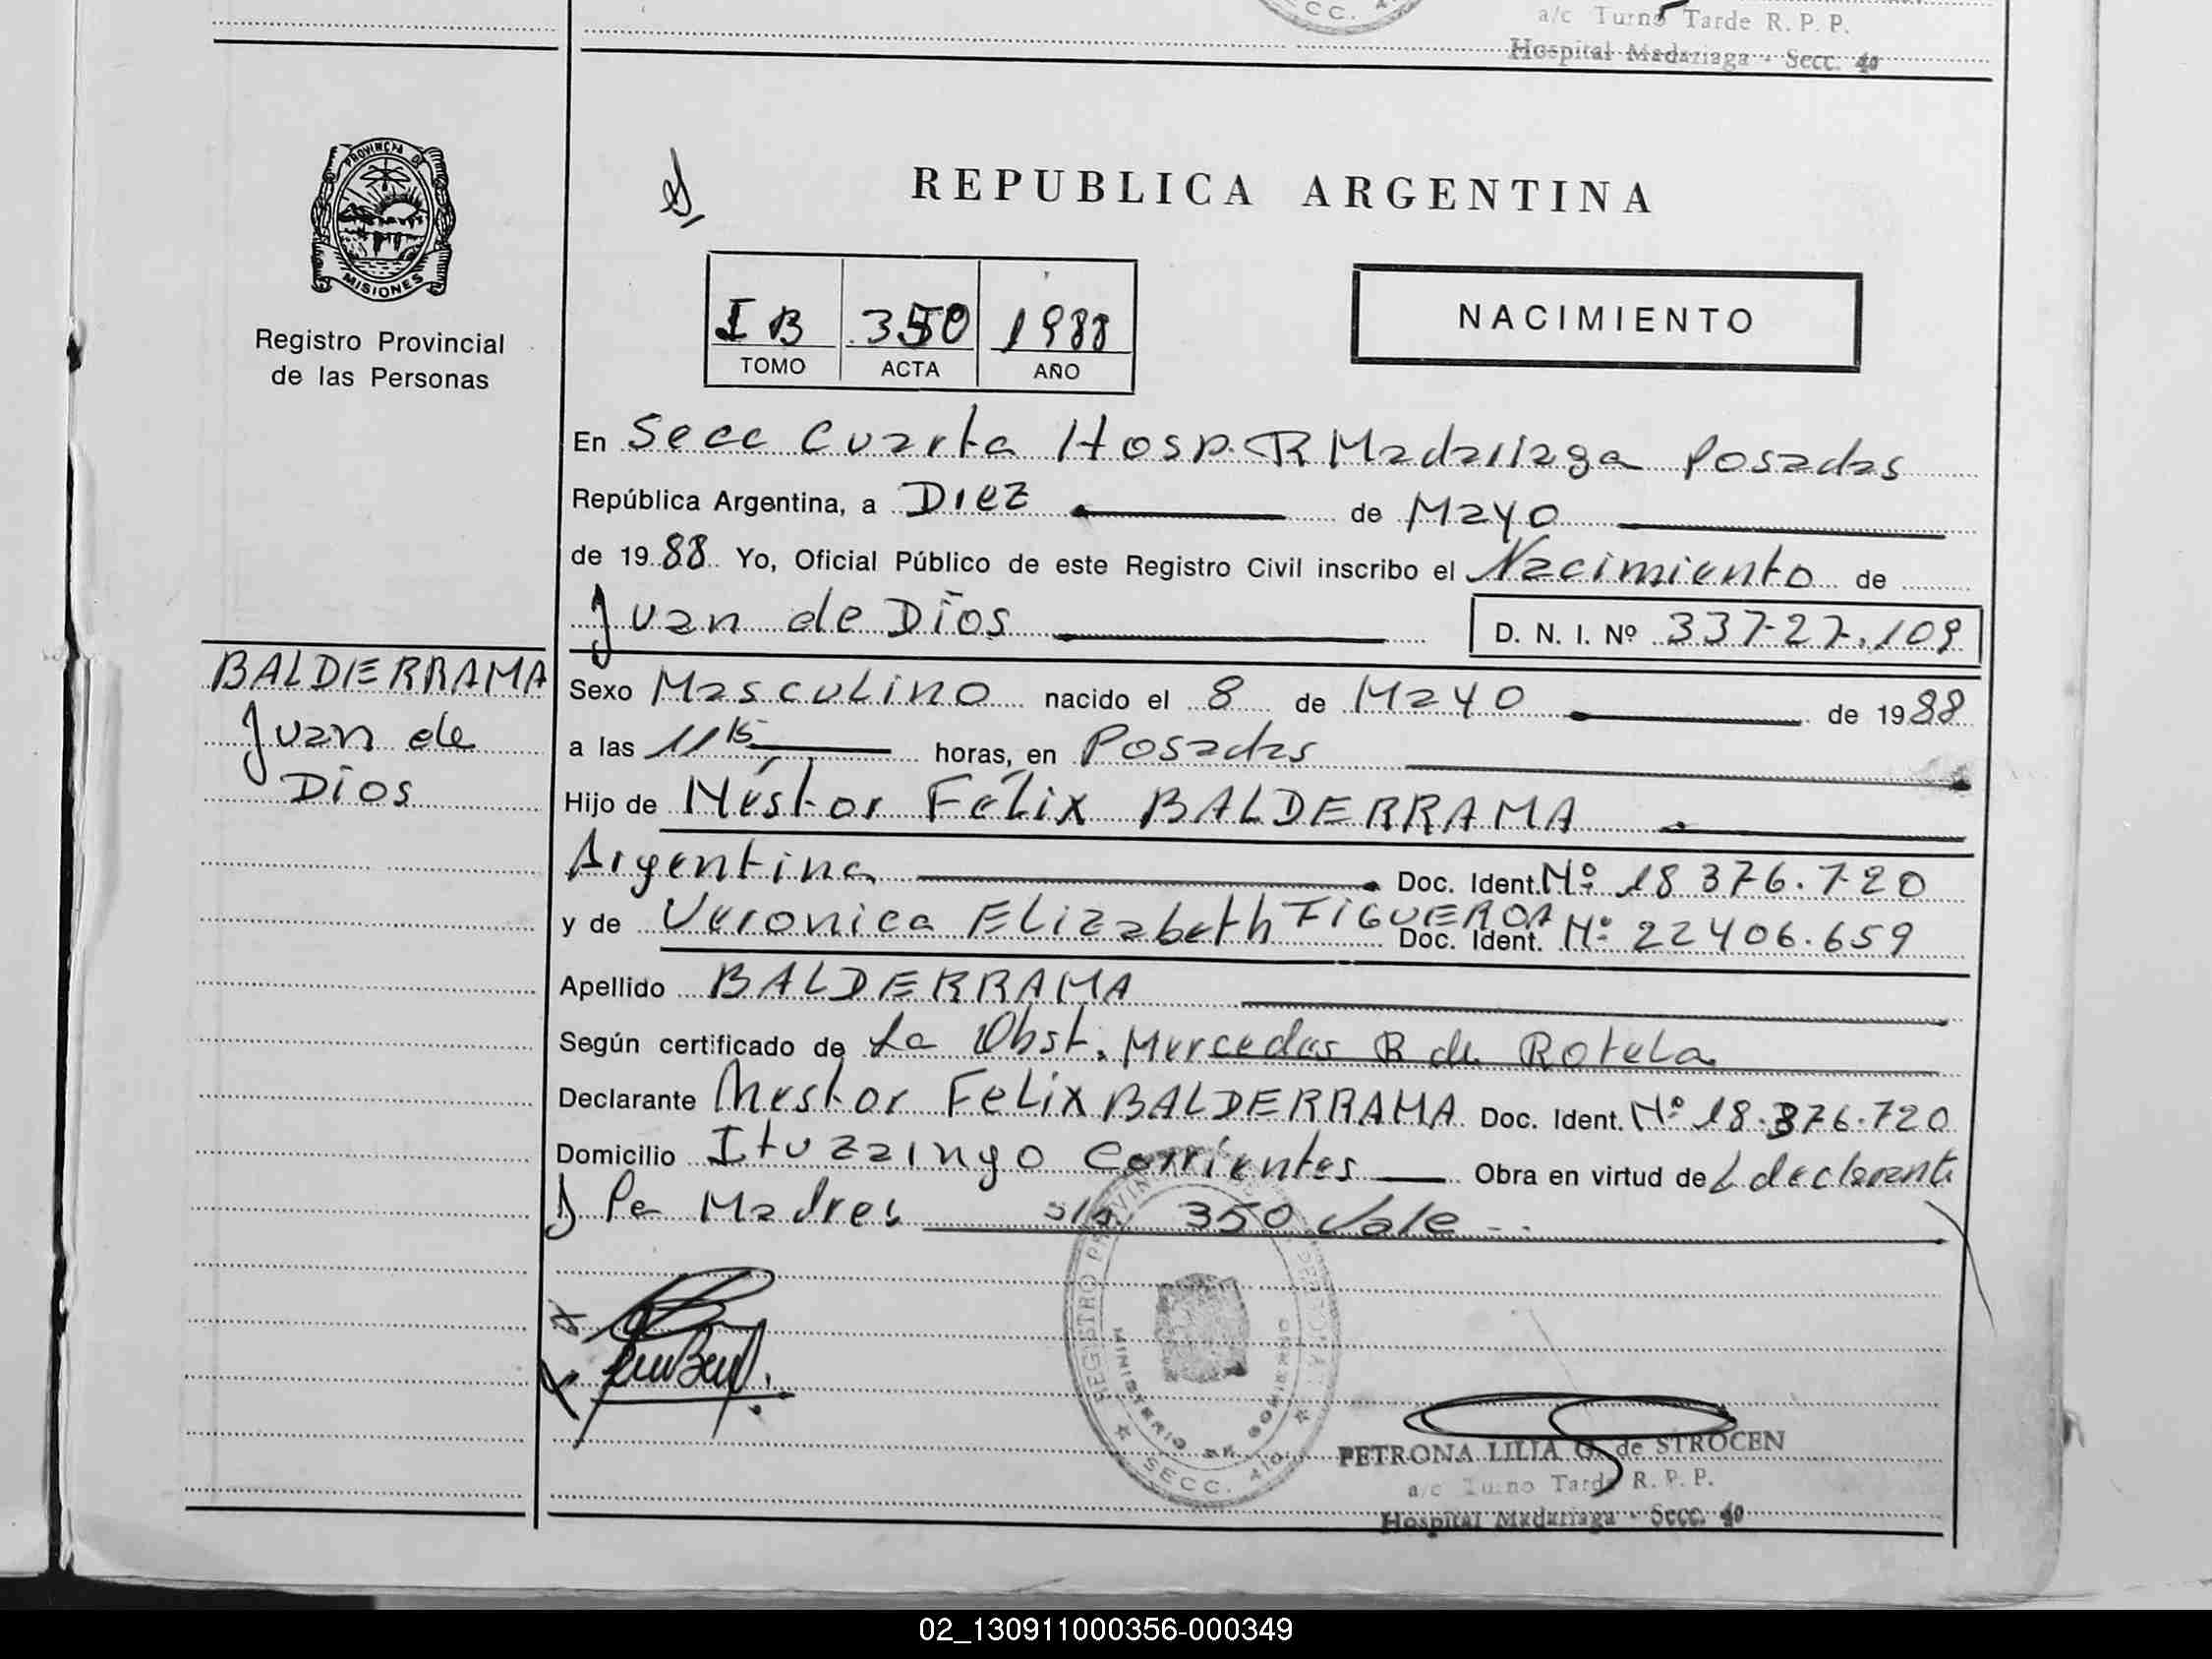 CC. 4
a/c Turno Tarde R. P. P.
Hospital Madariaga - Secc. 4o
PROVINCIA DE
MISIONES
Registro Provincial
de las Personas
REPUBLICA ARGENTINA
I B 350 1988
TOMO ACTA AÑO
NACIMIENTO
En Secc Cuarta Hosp. R Madariaga Posadas
República Argentina, a Diez de Mayo
de 1988 Yo, Oficial Público de este Registro Civil inscribo el Nacimiento de
Juan de Dios D. N. I. Nº 337-27.109
BALDERRAMA
Juan de
Dios
Sexo Masculino nacido el 8 de Mayo de 1988
a las 11 15 horas, en Posadas
Hijo de Néstor Félix BALDERRAMA
Argentina Doc. Ident. Nº 18 376.720
y de Veronica Elizabeth FIGUEROA Doc. Ident. Nº 22406.659
Apellido BALDERRAMA
Según certificado de La Obst. Mercedes R de Rotela
Declarante Nestor Felix BALDERRAMA Doc. Ident. Nº 18.376.720
Domicilio Ituzaingo Corrientes Obra en virtud de L declarante
Pe Madres s/r. 350 Vale
REGISTRO
MINISTERIO DE GOBIERNO
SECC. 4
PETRONA LILIA G. de STROCEN
a/c Turno Tarde R. P. P.
Hospital Madariaga - Secc. 4o
02_130911000356-000349